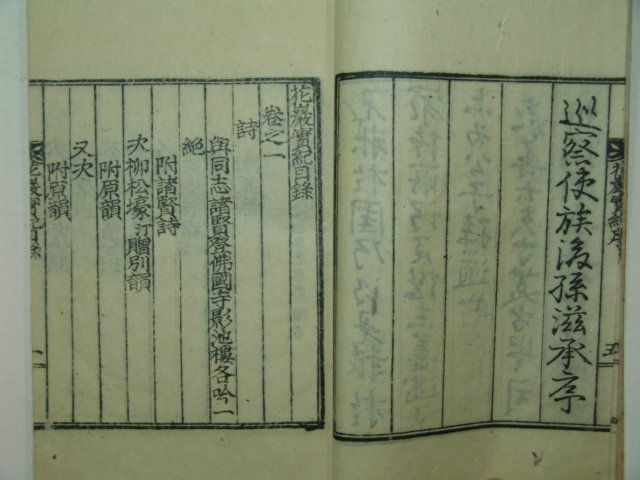 巡察使族後孫滋承序
五
花巖實紀目錄
卷之一
詩
與同志諸賢登佛國寺影池樓各吟一
絶
附諸賢詩
次柳松壕汀贈別韻
附原韻
又次
附原韻
花巖實紀目錄
一